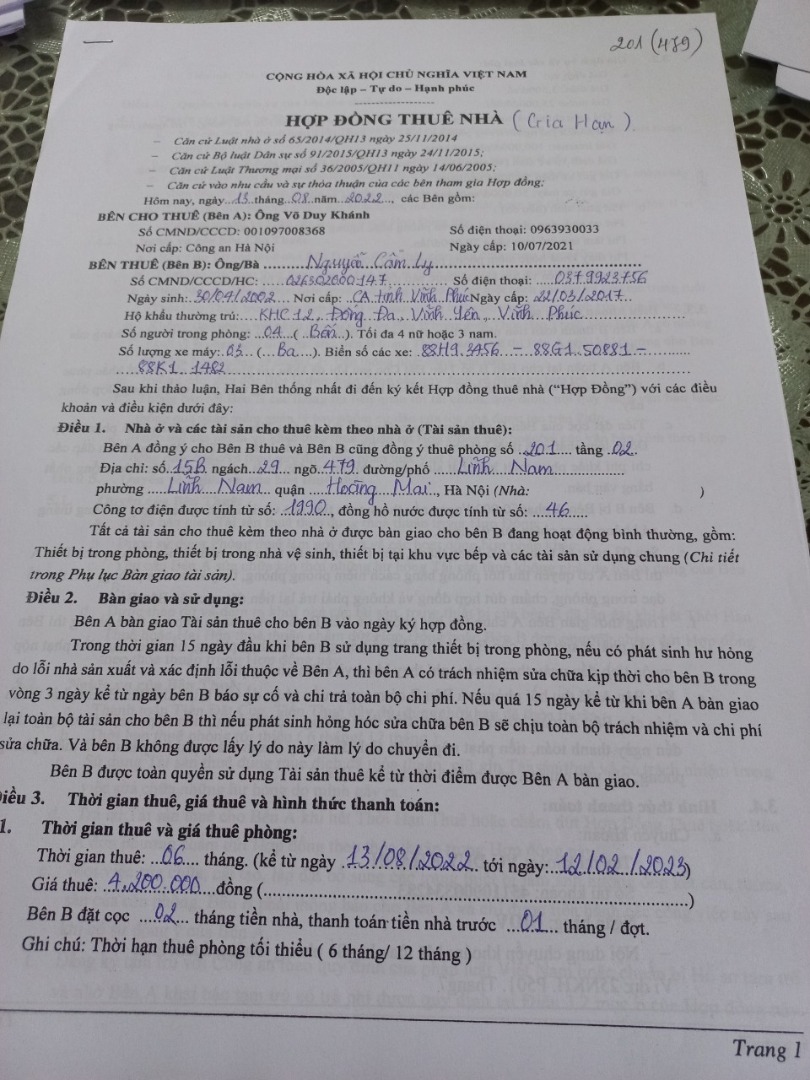 201 (479)
CỘNG HÒA XÃ HỘI CHỦ NGHĨA VIỆT NAM
Độc lập – Tự do – Hạnh phúc
HỢP ĐỒNG THUÊ NHÀ (Gia Hạn)
– Căn cứ Luật nhà ở số 65/2014/QH13 ngày 25/11/2014
– Căn cứ Bộ luật Dân sự số 91/2015/QH13 ngày 24/11/2015;
– Căn cứ Luật Thương mại số 36/2005/QH11 ngày 14/06/2005;
– Căn cứ vào nhu cầu và sự thỏa thuận của các bên tham gia Hợp đồng;
Hôm nay, ngày 13 tháng 08 năm 2022, các Bên gồm:
BÊN CHO THUÊ (Bên A): Ông Võ Duy Khánh
Số CMND/CCCD: 001097008368 Số điện thoại: 0963930033
Nơi cấp: Công an Hà Nội Ngày cấp: 10/07/2021
BÊN THUÊ (Bên B): Ông/Bà Nguyễn Cẩm Ly
Số CMND/CCCD/HC: 026302000147 Số điện thoại: 0379923756
Ngày sinh: 30/04/2002 Nơi cấp: CA tỉnh Vĩnh Phúc Ngày cấp: 22/03/2017
Hộ khẩu thường trú: KHC 12, Đống Đa, Vĩnh Yên, Vĩnh Phúc
Số người trong phòng: 04 ( Bốn ). Tối đa 4 nữ hoặc 3 nam.
Số lượng xe máy: 03 ( Ba ). Biển số các xe: 88H9.3456 – 88G1.50881 –
88K1 1482
Sau khi thảo luận, Hai Bên thống nhất đi đến ký kết Hợp đồng thuê nhà (“Hợp Đồng”) với các điều
khoản và điều kiện dưới đây:
Điều 1. Nhà ở và các tài sản cho thuê kèm theo nhà ở (Tài sản thuê):
Bên A đồng ý cho Bên B thuê và Bên B cũng đồng ý thuê phòng số 201 tầng 02.
Địa chỉ: số 15B ngách 29 ngõ 479 đường/phố Lĩnh Nam
phường Lĩnh Nam quận Hoàng Mai, Hà Nội (Nhà: )
Công tơ điện được tính từ số: 1990, đồng hồ nước được tính từ số: 46
Tất cả tài sản cho thuê kèm theo nhà ở được bàn giao cho bên B đang hoạt động bình thường, gồm:
Thiết bị trong phòng, thiết bị trong nhà vệ sinh, thiết bị tại khu vực bếp và các tài sản sử dụng chung (Chi tiết
trong Phụ lục Bàn giao tài sản).
Điều 2. Bàn giao và sử dụng:
Bên A bàn giao Tài sản thuê cho bên B vào ngày ký hợp đồng.
Trong thời gian 15 ngày đầu khi bên B sử dụng trang thiết bị trong phòng, nếu có phát sinh hư hỏng
do lỗi nhà sản xuất và xác định lỗi thuộc về Bên A, thì bên A có trách nhiệm sửa chữa kịp thời cho bên B trong
vòng 3 ngày kể từ ngày bên B báo sự cố và chi trả toàn bộ chi phí. Nếu quá 15 ngày kể từ khi bên A bàn giao
lại toàn bộ tài sản cho bên B thì nếu phát sinh hỏng hóc sửa chữa bên B sẽ chịu toàn bộ trách nhiệm và chi phí
sửa chữa. Và bên B không được lấy lý do này làm lý do chuyển đi.
Bên B được toàn quyền sử dụng Tài sản thuê kể từ thời điểm được Bên A bàn giao.
Điều 3. Thời gian thuê, giá thuê và hình thức thanh toán:
1. Thời gian thuê và giá thuê phòng:
Thời gian thuê: 06 tháng. (kể từ ngày 13/08/2022 tới ngày: 12/02/2023)
Giá thuê: 4.200.000 đồng ( )
Bên B đặt cọc 02 tháng tiền nhà, thanh toán tiền nhà trước 01 tháng / đợt.
Ghi chú: Thời hạn thuê phòng tối thiểu ( 6 tháng/ 12 tháng )
Trang 1